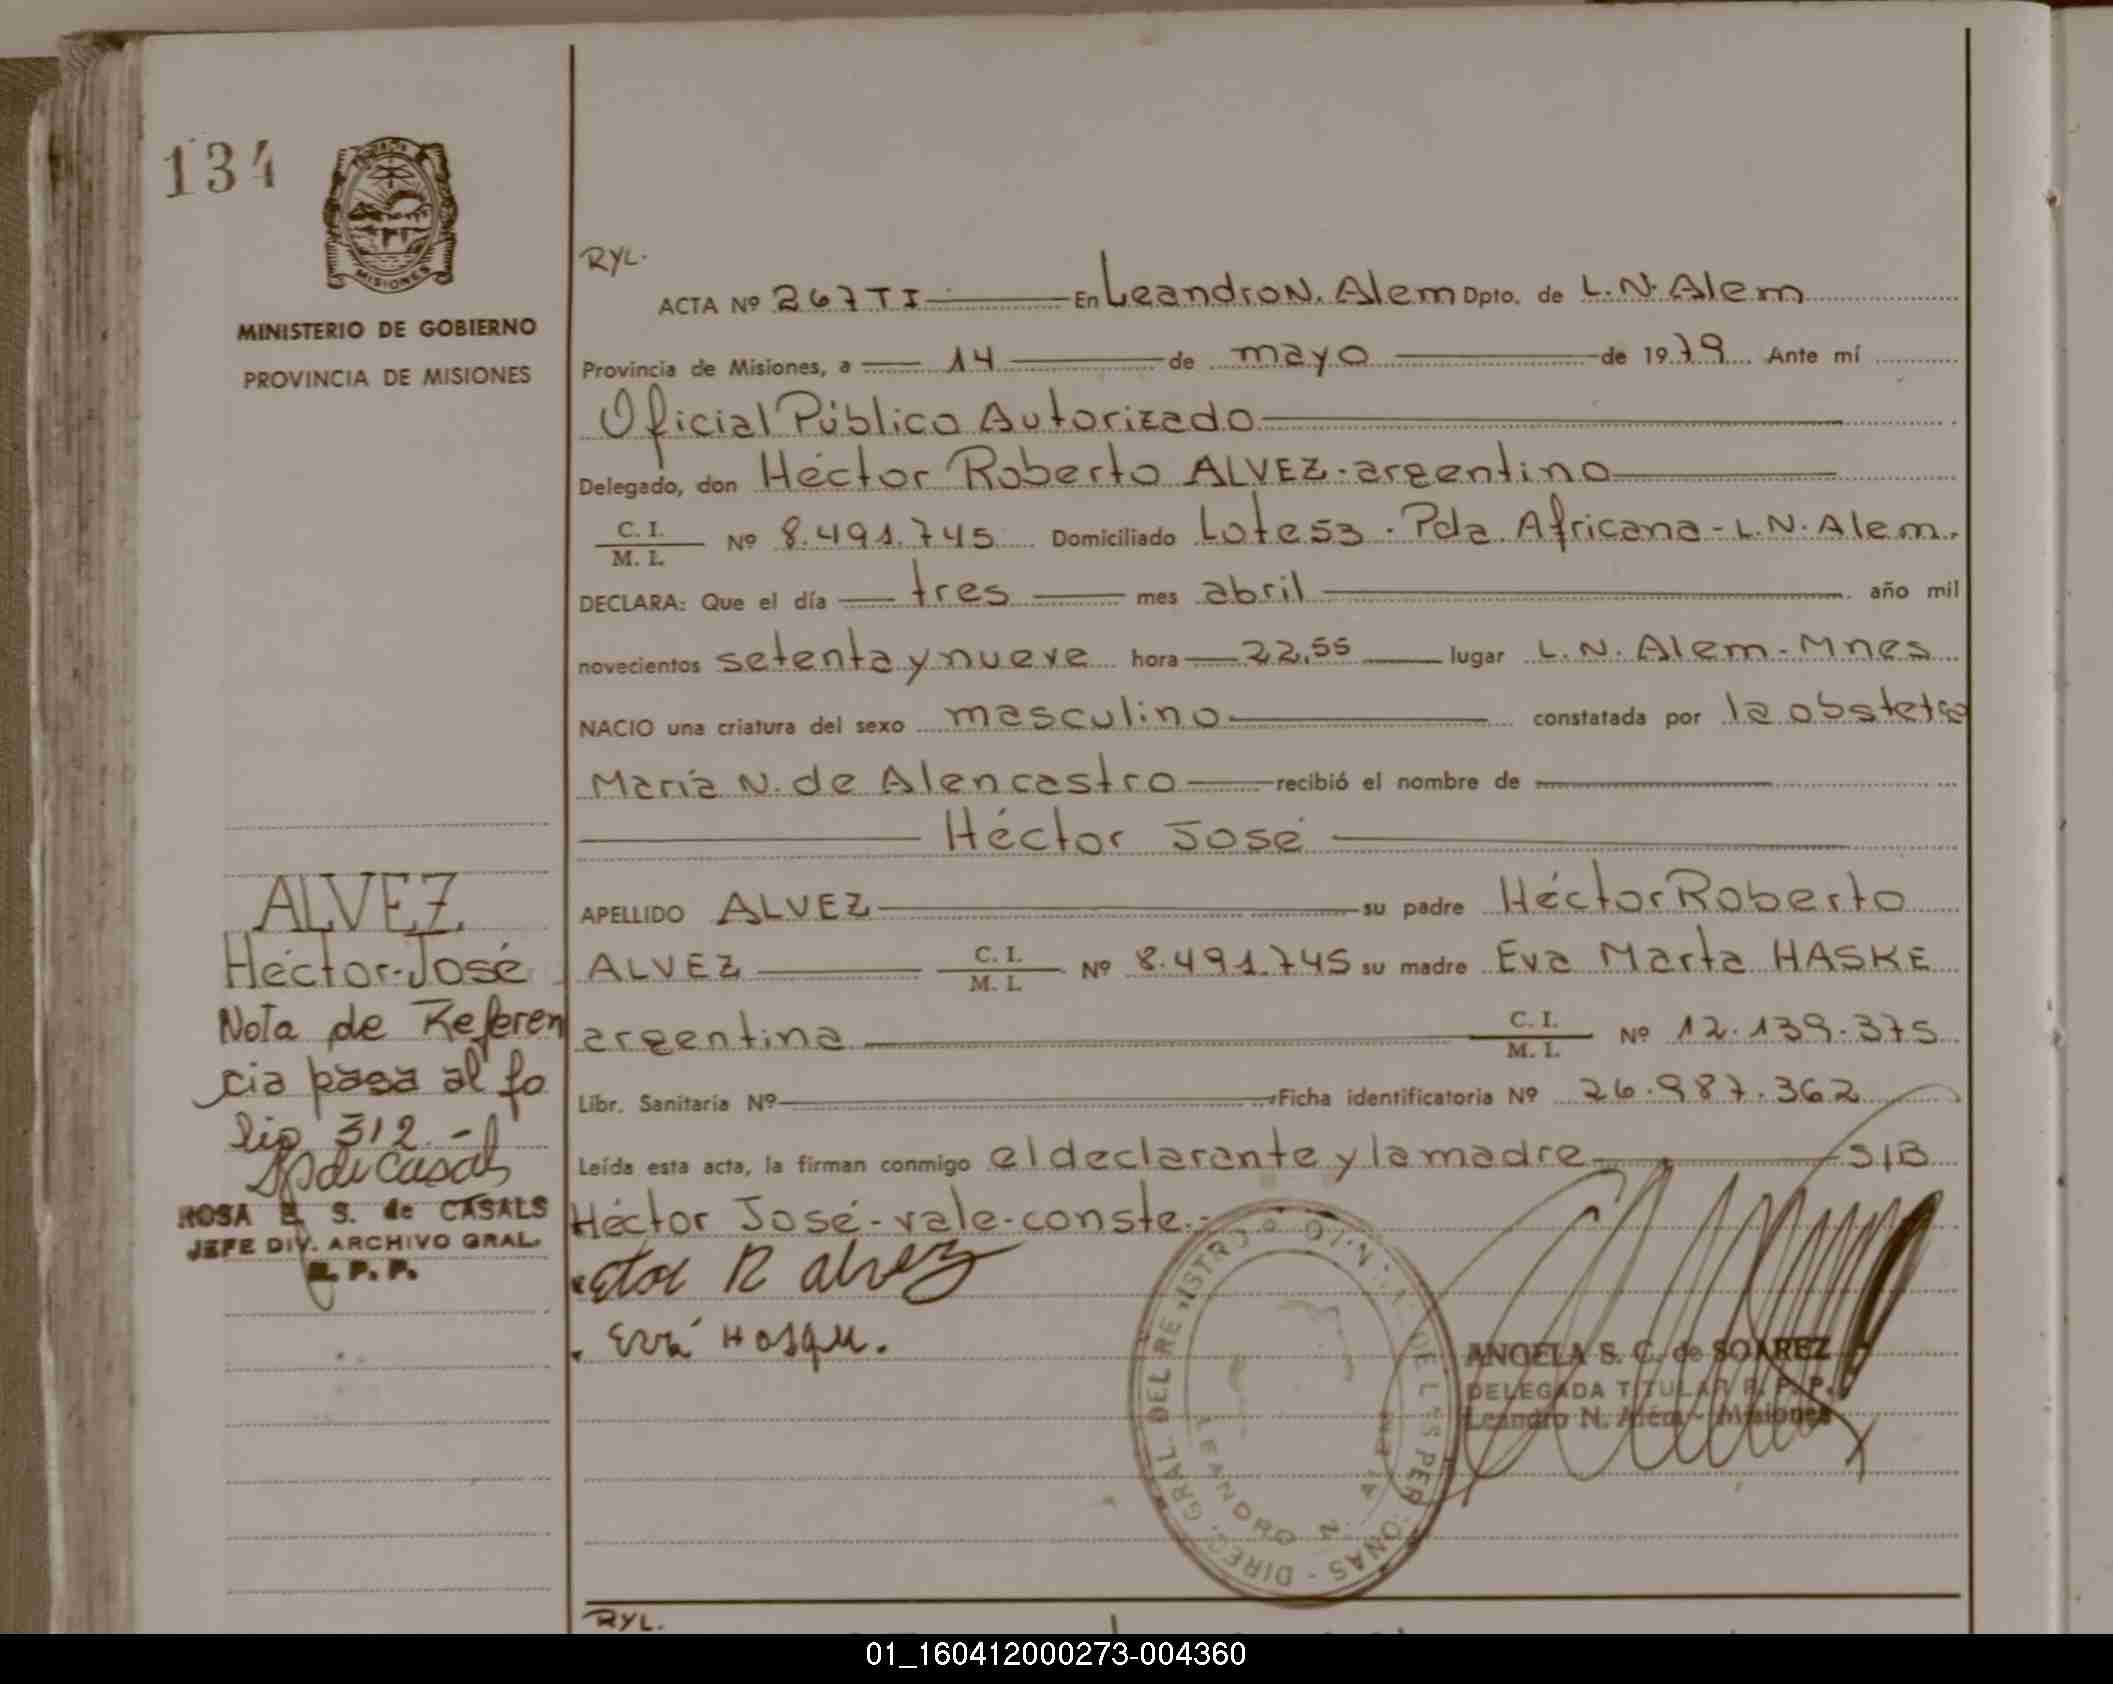 134
MISIONES
MINISTERIO DE GOBIERNO
PROVINCIA DE MISIONES
RYL.
ACTA Nº 267 T I En Leandro N. Alem Dpto. de L.N. Alem
Provincia de Misiones, a 14 de mayo de 1979 Ante mí
Oficial Público Autorizado
Delegado, don Héctor Roberto ALVEZ - argentino
C. I.
M. I. Nº 8.491.745 Domiciliado Lote 53 - Pda. Africana - L.N. Alem.
DECLARA: Que el día tres mes abril año mil
novecientos setenta y nueve hora 22,55 lugar L.N. Alem - Mnes
NACIO una criatura del sexo masculino constatada por la obstetra
María N. de Alencastro recibió el nombre de
Héctor José
APELLIDO ALVEZ su padre Héctor Roberto
ALVEZ C. I. M. I. Nº 8.491.745 su madre Eva Marta HASKE
argentina C. I. M. I. Nº 12.139.375
Libr. Sanitaria Nº Ficha identificatoria Nº 26.987.362
Leída esta acta, la firman conmigo el declarante y la madre S/B
Héctor José - vale - conste.-
ector R alvez
Eva Hasque.
ALVEZ
Héctor José
Nota de Referen
cia pasa al fo
lio 312.-
ROSA E. S. de CASALS
JEFE DIV. ARCHIVO GRAL.
R. P. P.
DIREC. GRAL. DEL REGISTRO PROVINCIAL DE LAS PERSONAS
LEANDRO N. ALEM
ANGELA S. C. de SOAREZ
DELEGADA TITULAR R. P. P.
Leandro N. Alem - Misiones
RYL.
01_160412000273-004360